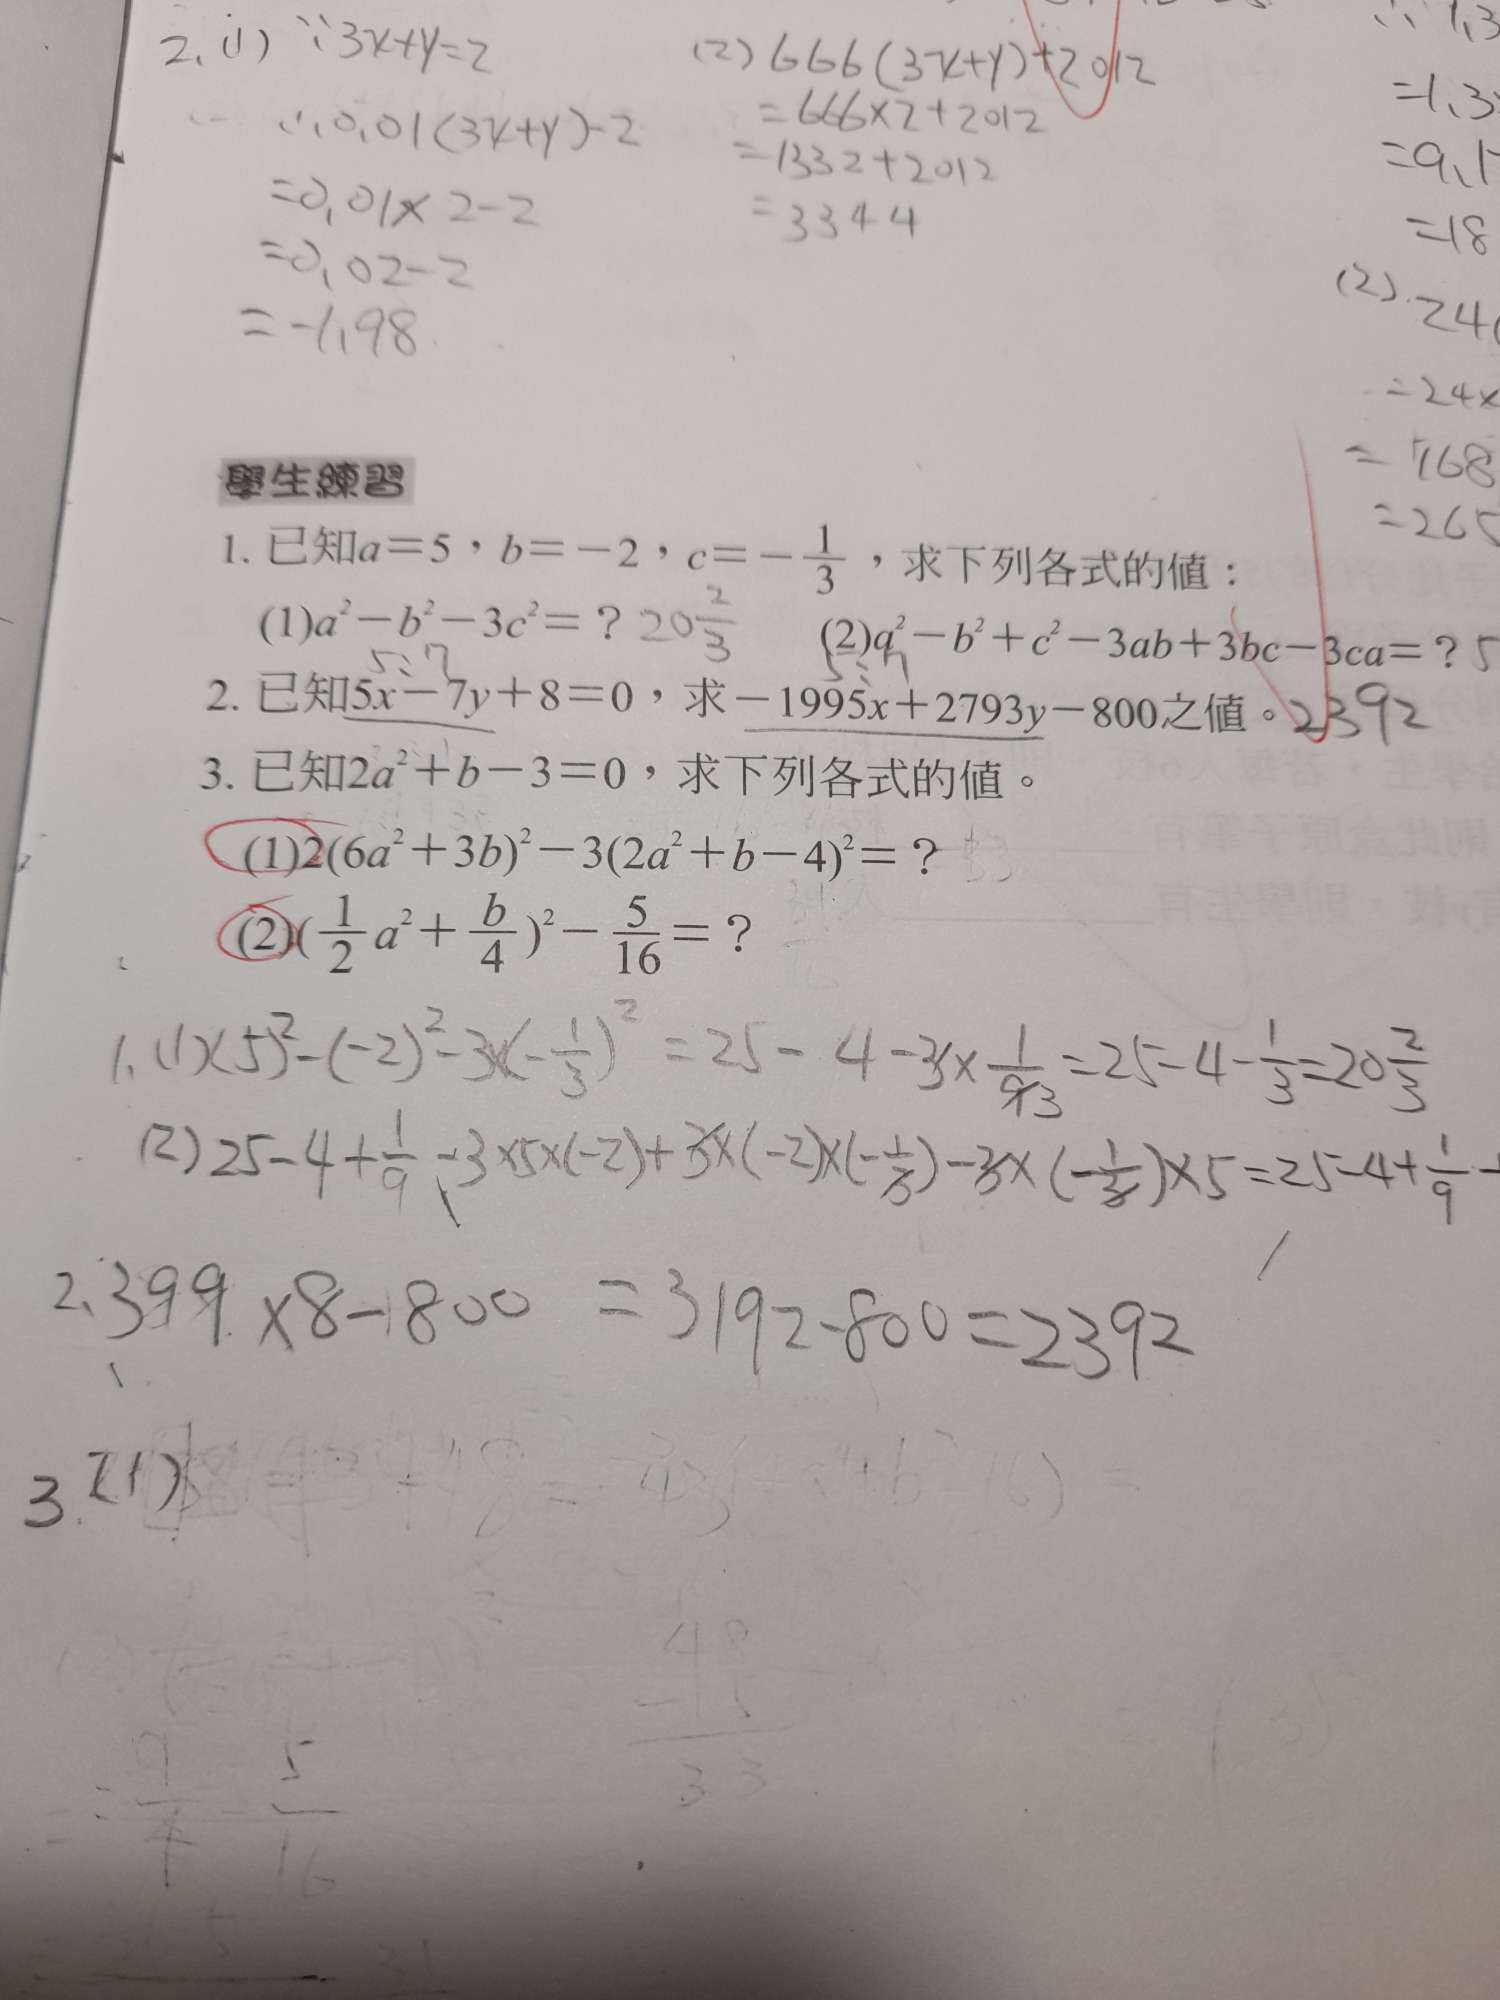 2. (1) ∵3x+y=2
∴0.01(3x+y)-2
=0.01×2-2
=0.02-2
=-1.98
(2) 666(3x+y)+2012
=666×2+2012
=1332+2012
=3344
=1.3
=9.1
=18
(2). 24(
=24×
=768
=265
學生練習
1. 已知a=5，b=-2，c=-1/3，求下列各式的值：
(1)a²-b²-3c²=？ 20 2/3 (2)a²-b²+c²-3ab+3bc-3ca=？5
5:7 5:7
2. 已知5x-7y+8=0，求-1995x+2793y-800之值。2392
3. 已知2a²+b-3=0，求下列各式的值。
(1)2(6a²+3b)²-3(2a²+b-4)²=？
(2)(1/2 a²+b/4)²-5/16=？
1. (1)(5)²-(-2)²-3×(-1/3)²=25-4-3×1/9 3=25-4-1/3=20 2/3
(2) 25-4+1/9-3×5×(-2)+3×(-2)×(-1/3)-3×(-1/3)×5=25-4+1/9-
2. 399×8-800=3192-800=2392
3. (1)
48
33
=9/4 5/16